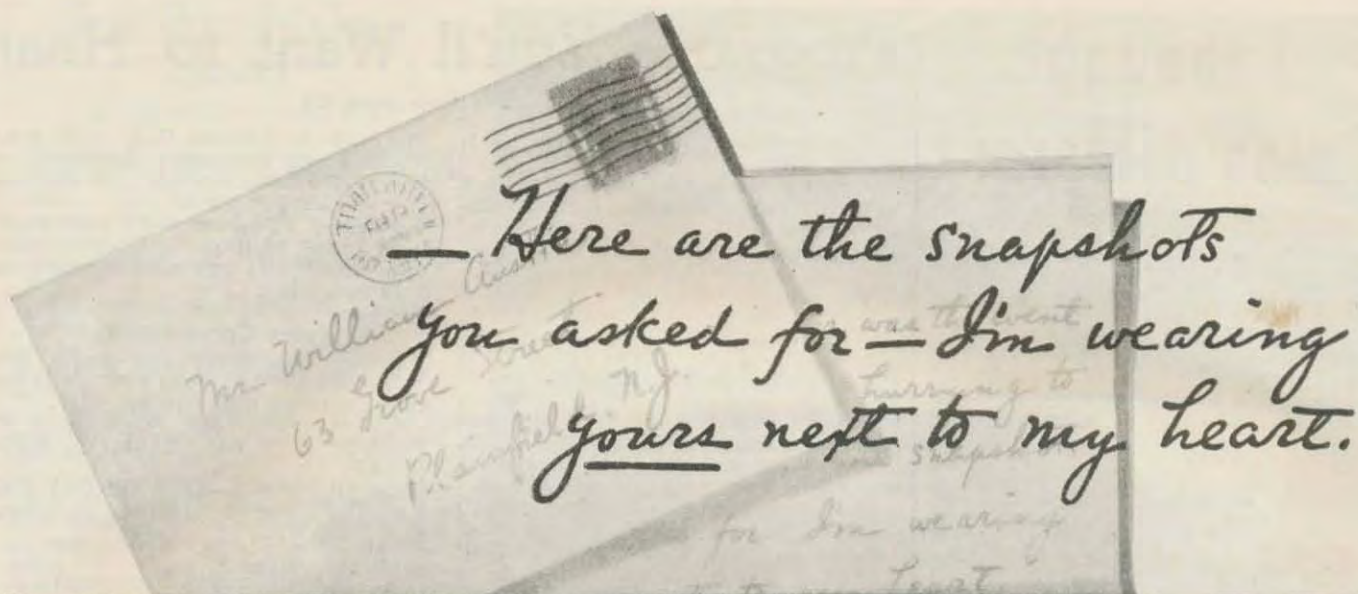 — Here are the snapshots
you asked for — I'm wearing
yours next to my heart.
Mr. William Austin
63 Grove Street
Plainfield, N.J.
was the
hurrying to
snapshots
for I'm wearing
to my heart